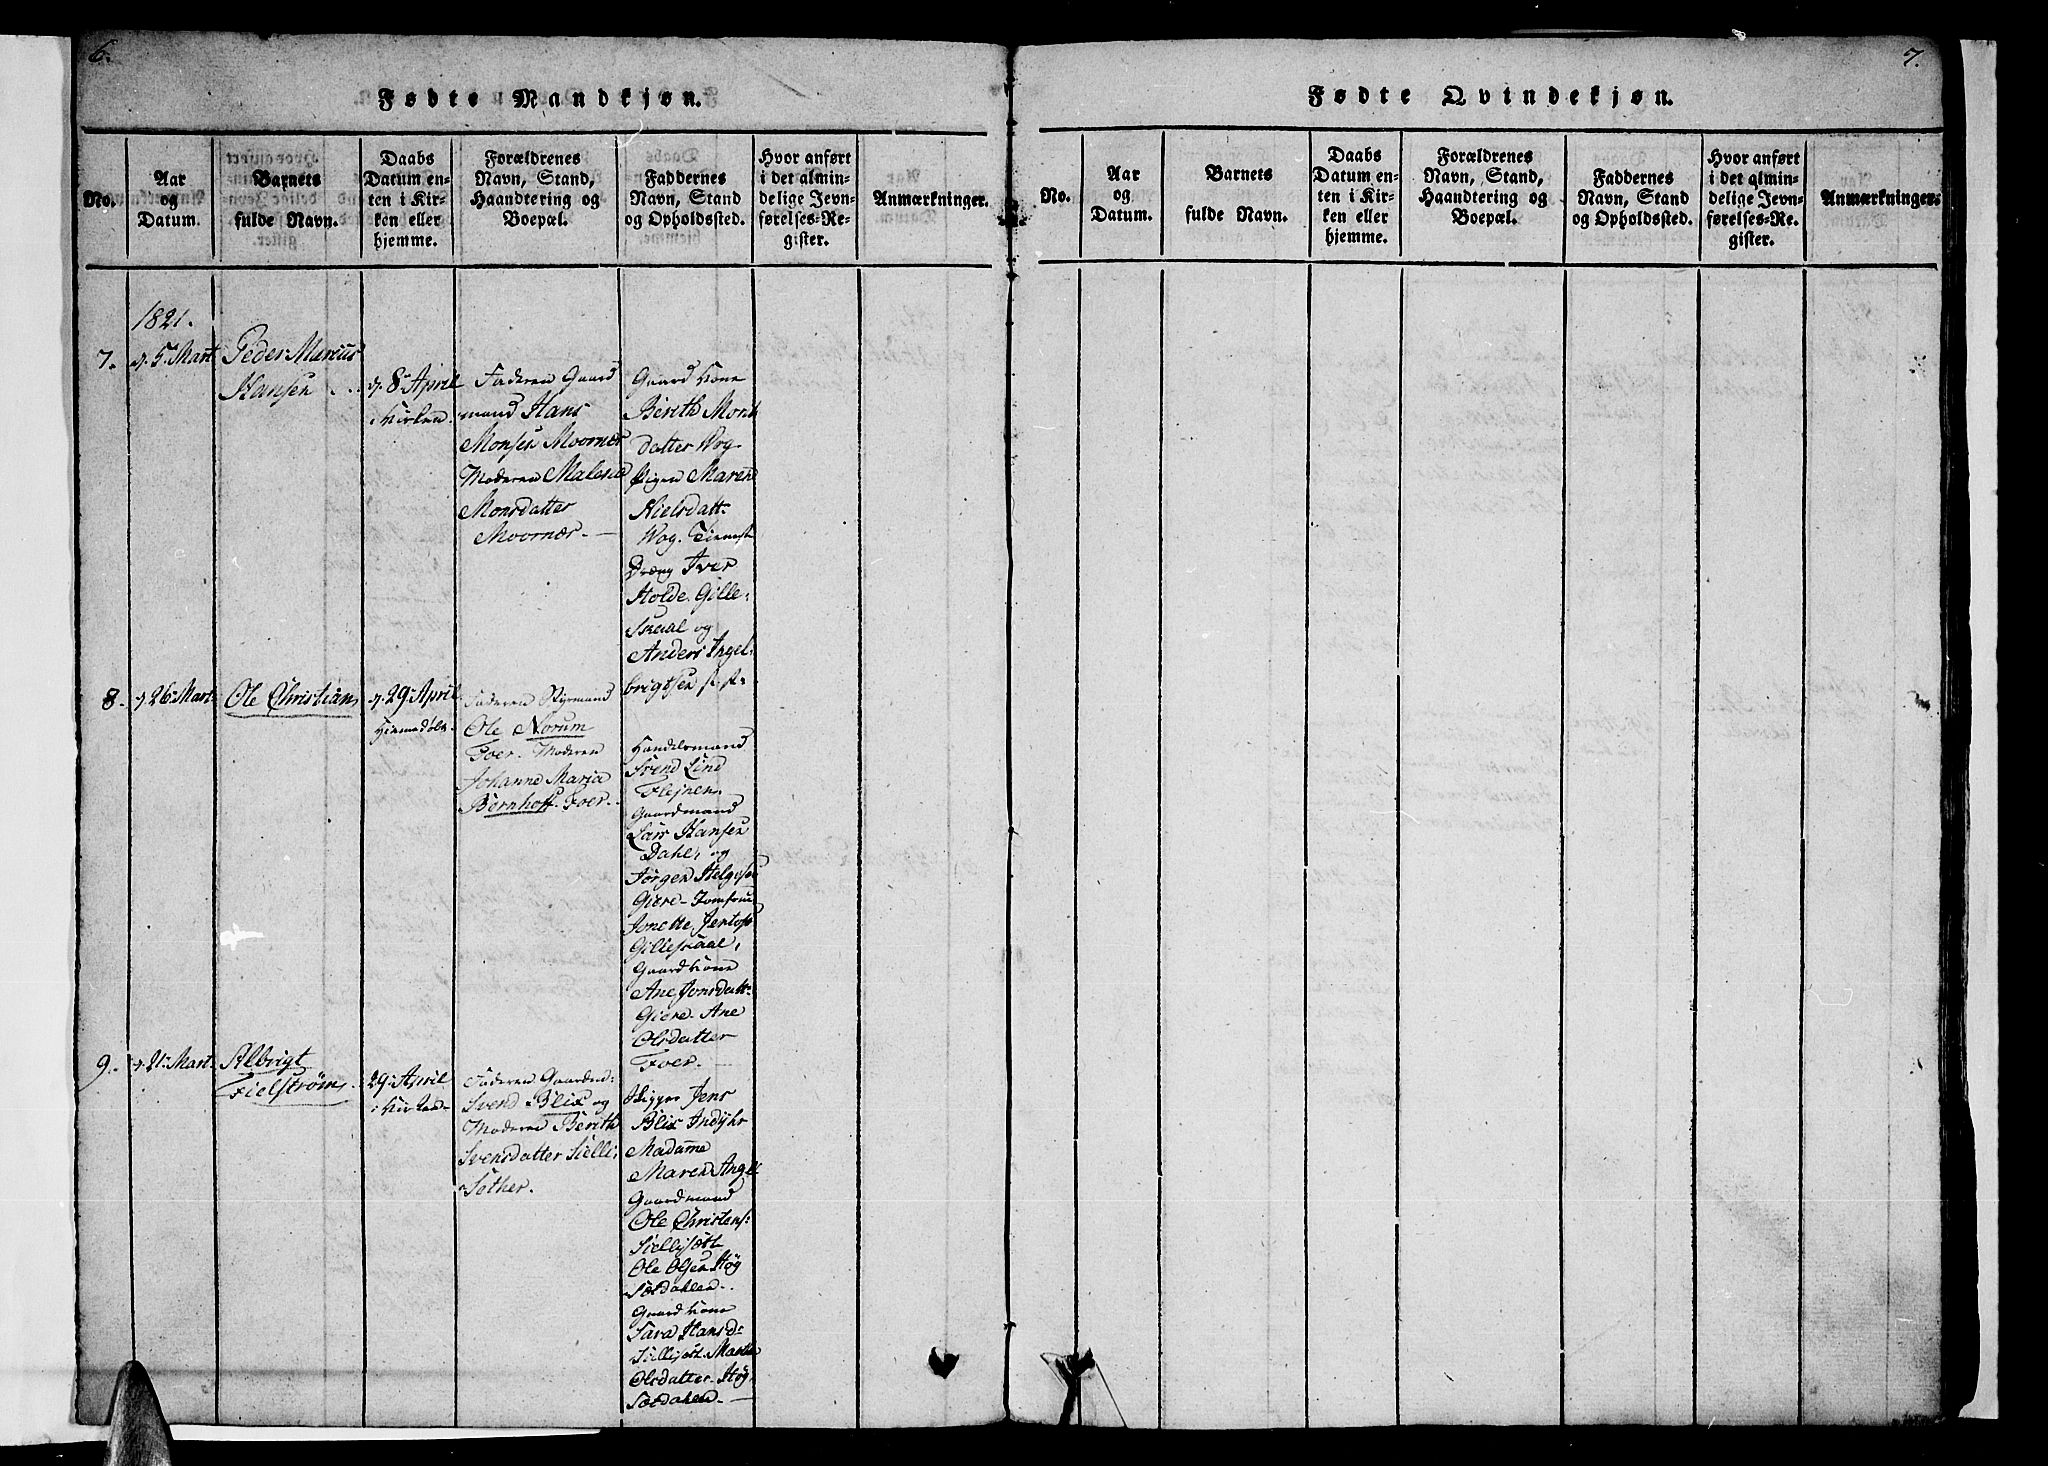 6.
Fødte Mandkjøn.
No.
Aar
og
Datum.
Barnets
fulde Navn.
Daabs
Datum en-
ten i Kir-
ken eller
hjemme.
Forældrenes
Navn, Stand,
Haandtering og
Boepæl.
Faddernes
Navn, Stand
og Opholdssted.
Hvor anført
i det almin-
delige Jevn-
førelses-Re-
gister.
Anmærkninger.
1821.
7.
d. 5. Mart
Peder Marcus
Hansen
d. 8. April
i Kirken
Faderen Gaard
mand Hans
Monsen Moornær
Moderen Malena
Monsdatter
Moornær.
Gaard Kone
Berith Mort
datter Wog
Pigen Maren
Nielsdatt
Wog. Tieneste
Dreng Iver
Holde. Gille-
skaal og
Anders Ingel-
brigtsen
8.
d. 26. Mart
Ole Christian
d. 29. April
Hiemedøbt.
Faderen Styrmand
Ole Norum
Foer. Moderen
Johanne Maria
Bernhoff. Foer.
Handelsmand
Svend Lind
Flejnen
Gaardmand
Lars Hansen
Dahl, og
Jørgen Helgesen
Giere. Jomfrue
Jonette Jentoft
Gilleskaal,
Gaard Kone
Ane Jonsdatt
Giere. Ane
Olsdatter
Foer.
9.
d. 21. Mart.
Albrigt
Fielstrøm
29. April
i Kirken
Faderen Gaardm:
Svend Blix og
Moderen Berith
Svensdatter Sielle,
Sother.
Jens
Blix Indyhr
Madame
Maren Angel
Gaardmand
Ole Christens:
Siellesøtt
Ole Olsen Høg
Sætdahlen.
Gaard Kone
Sara Hansd:
Siellesøtt. Martha
Olsdatter. Høg
Sætdahlen.
7.
Fødte Qvindekjøn.
No.
Aar
og
Datum.
Barnets
fulde Navn.
Daabs
Datum en-
ten i Kir-
ken eller
hjemme.
Forældrenes
Navn, Stand,
Haandtering og
Boepæl.
Faddernes
Navn, Stand
og Opholdssted.
Hvor anført
i det almin-
delige Jevn-
førelses-Re-
gister.
Anmærkninger.